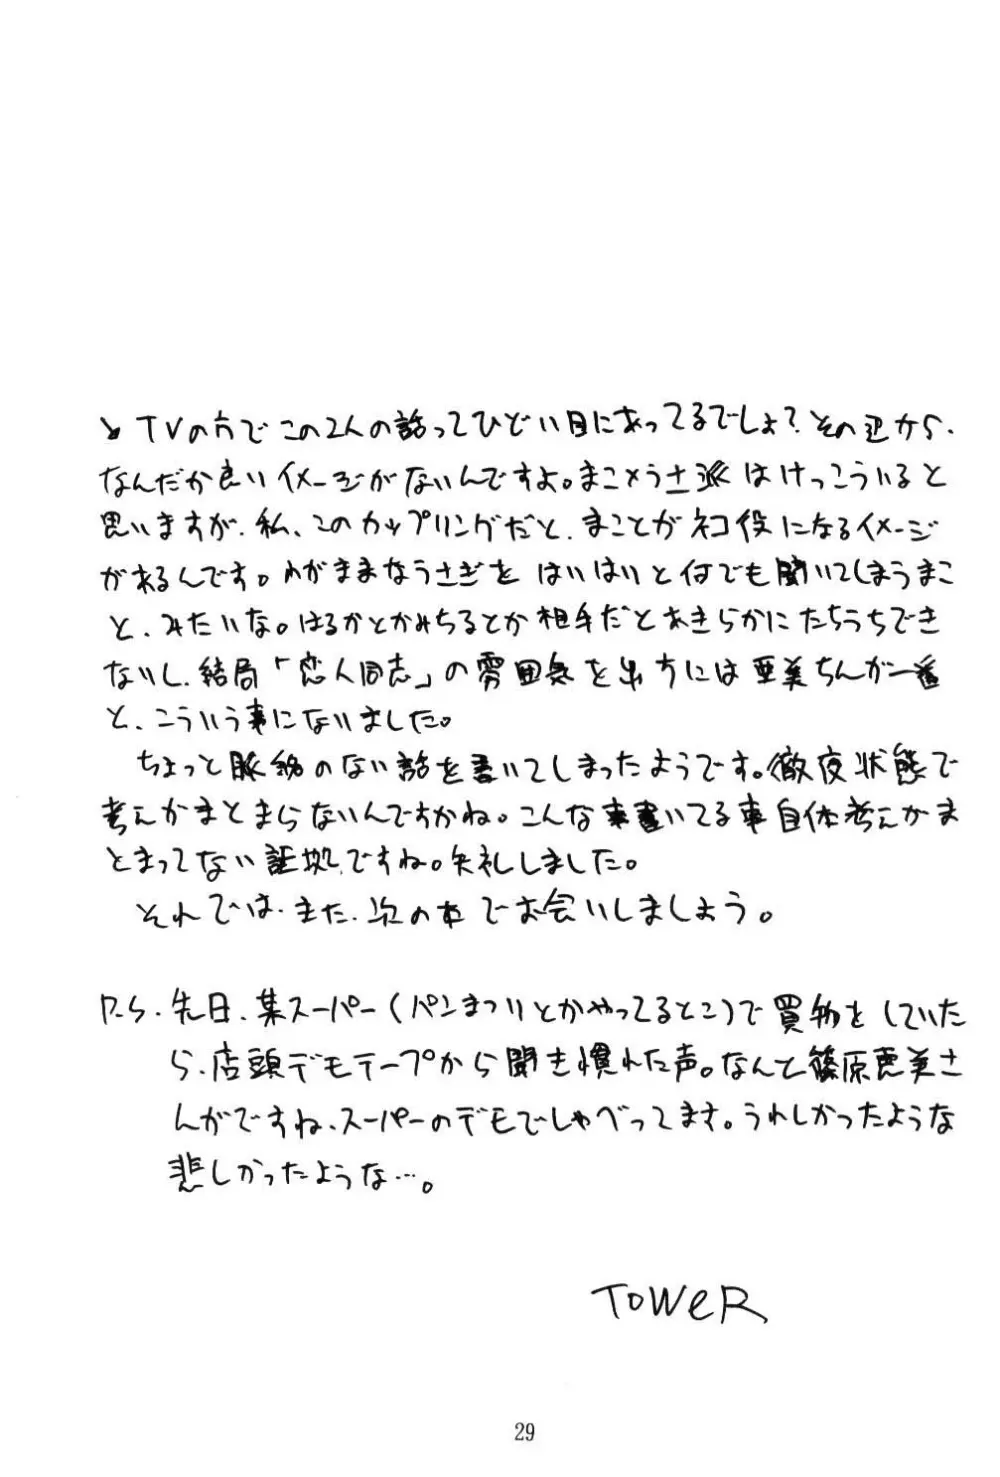 と TVの方でこの2人の話ってひどい目にあってるでしょ?その辺から、
なんだか良いイメージがないんですよ。まこ×うさ派はけっこういると
思いますが、私、このカップリングだと、まことがネコ役になるイメージ
があるんです。わがままなうさぎをはいはいと何でも聞いてしまうまこ
と、みたいな。はるかとかみちるとか相手だとあきらかにたちうちでき
ないし、結局「恋人同志」の雰囲気を出すには亜美ちんが一番
と、こういう事になりました。
ちょっと脈絡のない話を書いてしまったようです。徹夜状態で
考えがまとまらないんですかね。こんな事書いてる事自体考えがま
とまってない証拠ですね。失礼しました。
それでは、また、次の本でお会いしましょう。
P.S. 先日、某スーパー(パンまつりとかやってるとこ)で買物をしていた
ら、店頭デモテープから聞き慣れた声。なんと篠原恵美さ
んがですね、スーパーのデモでしゃべってます。うれしかったような
悲しかったような…。
TOWeR
29